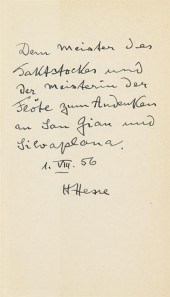 Dem Meister des
Taktstockes und
der Meisterin der
Flöte zum Andenken
an San Gian und
Silvaplana.
1. VIII. 56
HHesse